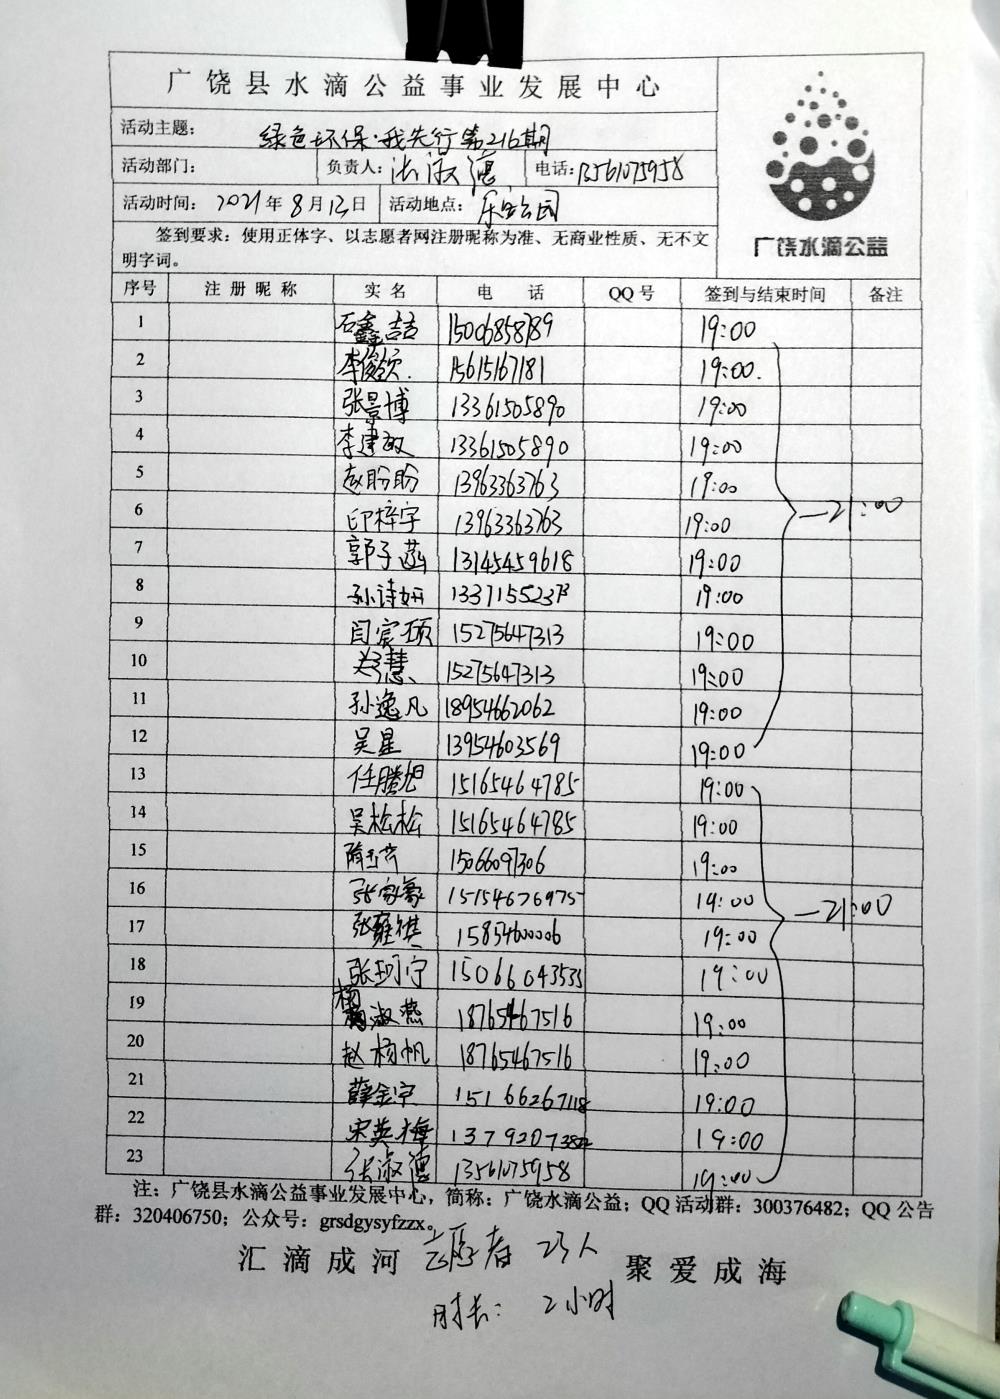 广饶县水滴公益事业发展中心
活动主题： 绿色环保·我先行第216期
活动部门： 负责人：张淑德 电话：13561075958
活动时间：2021年8月12日 活动地点：乐安公园
签到要求：使用正体字、以志愿者网注册昵称为准、无商业性质、无不文
明字词。
广饶水滴公益
序号 注册昵称 实名 电话 QQ号 签到与结束时间 备注
1 石鑫喆 15006858789 19:00
2 李俊钦. 15615167181 19:00.
3 张景博 13361505890 19:00
4 李建敏 13361505890 19:00
5 赵盼盼 13963363763 19:00
6 印梓宇 13963363763 19:00 —21:00
7 郭子菡 13145459618 19:00
8 孙诗妍 13371552373 19:00
9 闫宸硕 15275647313 19:00
10 慧 15275647313 19:00
11 孙逸凡 18954662062 19:00
12 吴星 13954603569 19:00
13 任腾旭 15165464785 19:00
14 吴松松 15165464785 19:00
15 隋玉芹 15066097306 19:00
16 张家豪 151546769757 19:00 —21:00
17 张雍祺 15854600006 19:00
18 张珂宁 15066043535 19:00
19 杨淑燕 18765467516 19:00
20 赵杨帆 18765467516 19:00
21 薛金宇 15166267118 19:00
22 宋英梅 19:00
23 张淑德 13561075958 19:00
注：广饶县水滴公益事业发展中心，简称：广饶水滴公益；QQ活动群：300376482；QQ公告
群：320406750；公众号：grsdgysyfzzx。
汇滴成河 志愿者 23人 聚爱成海
时长：2小时